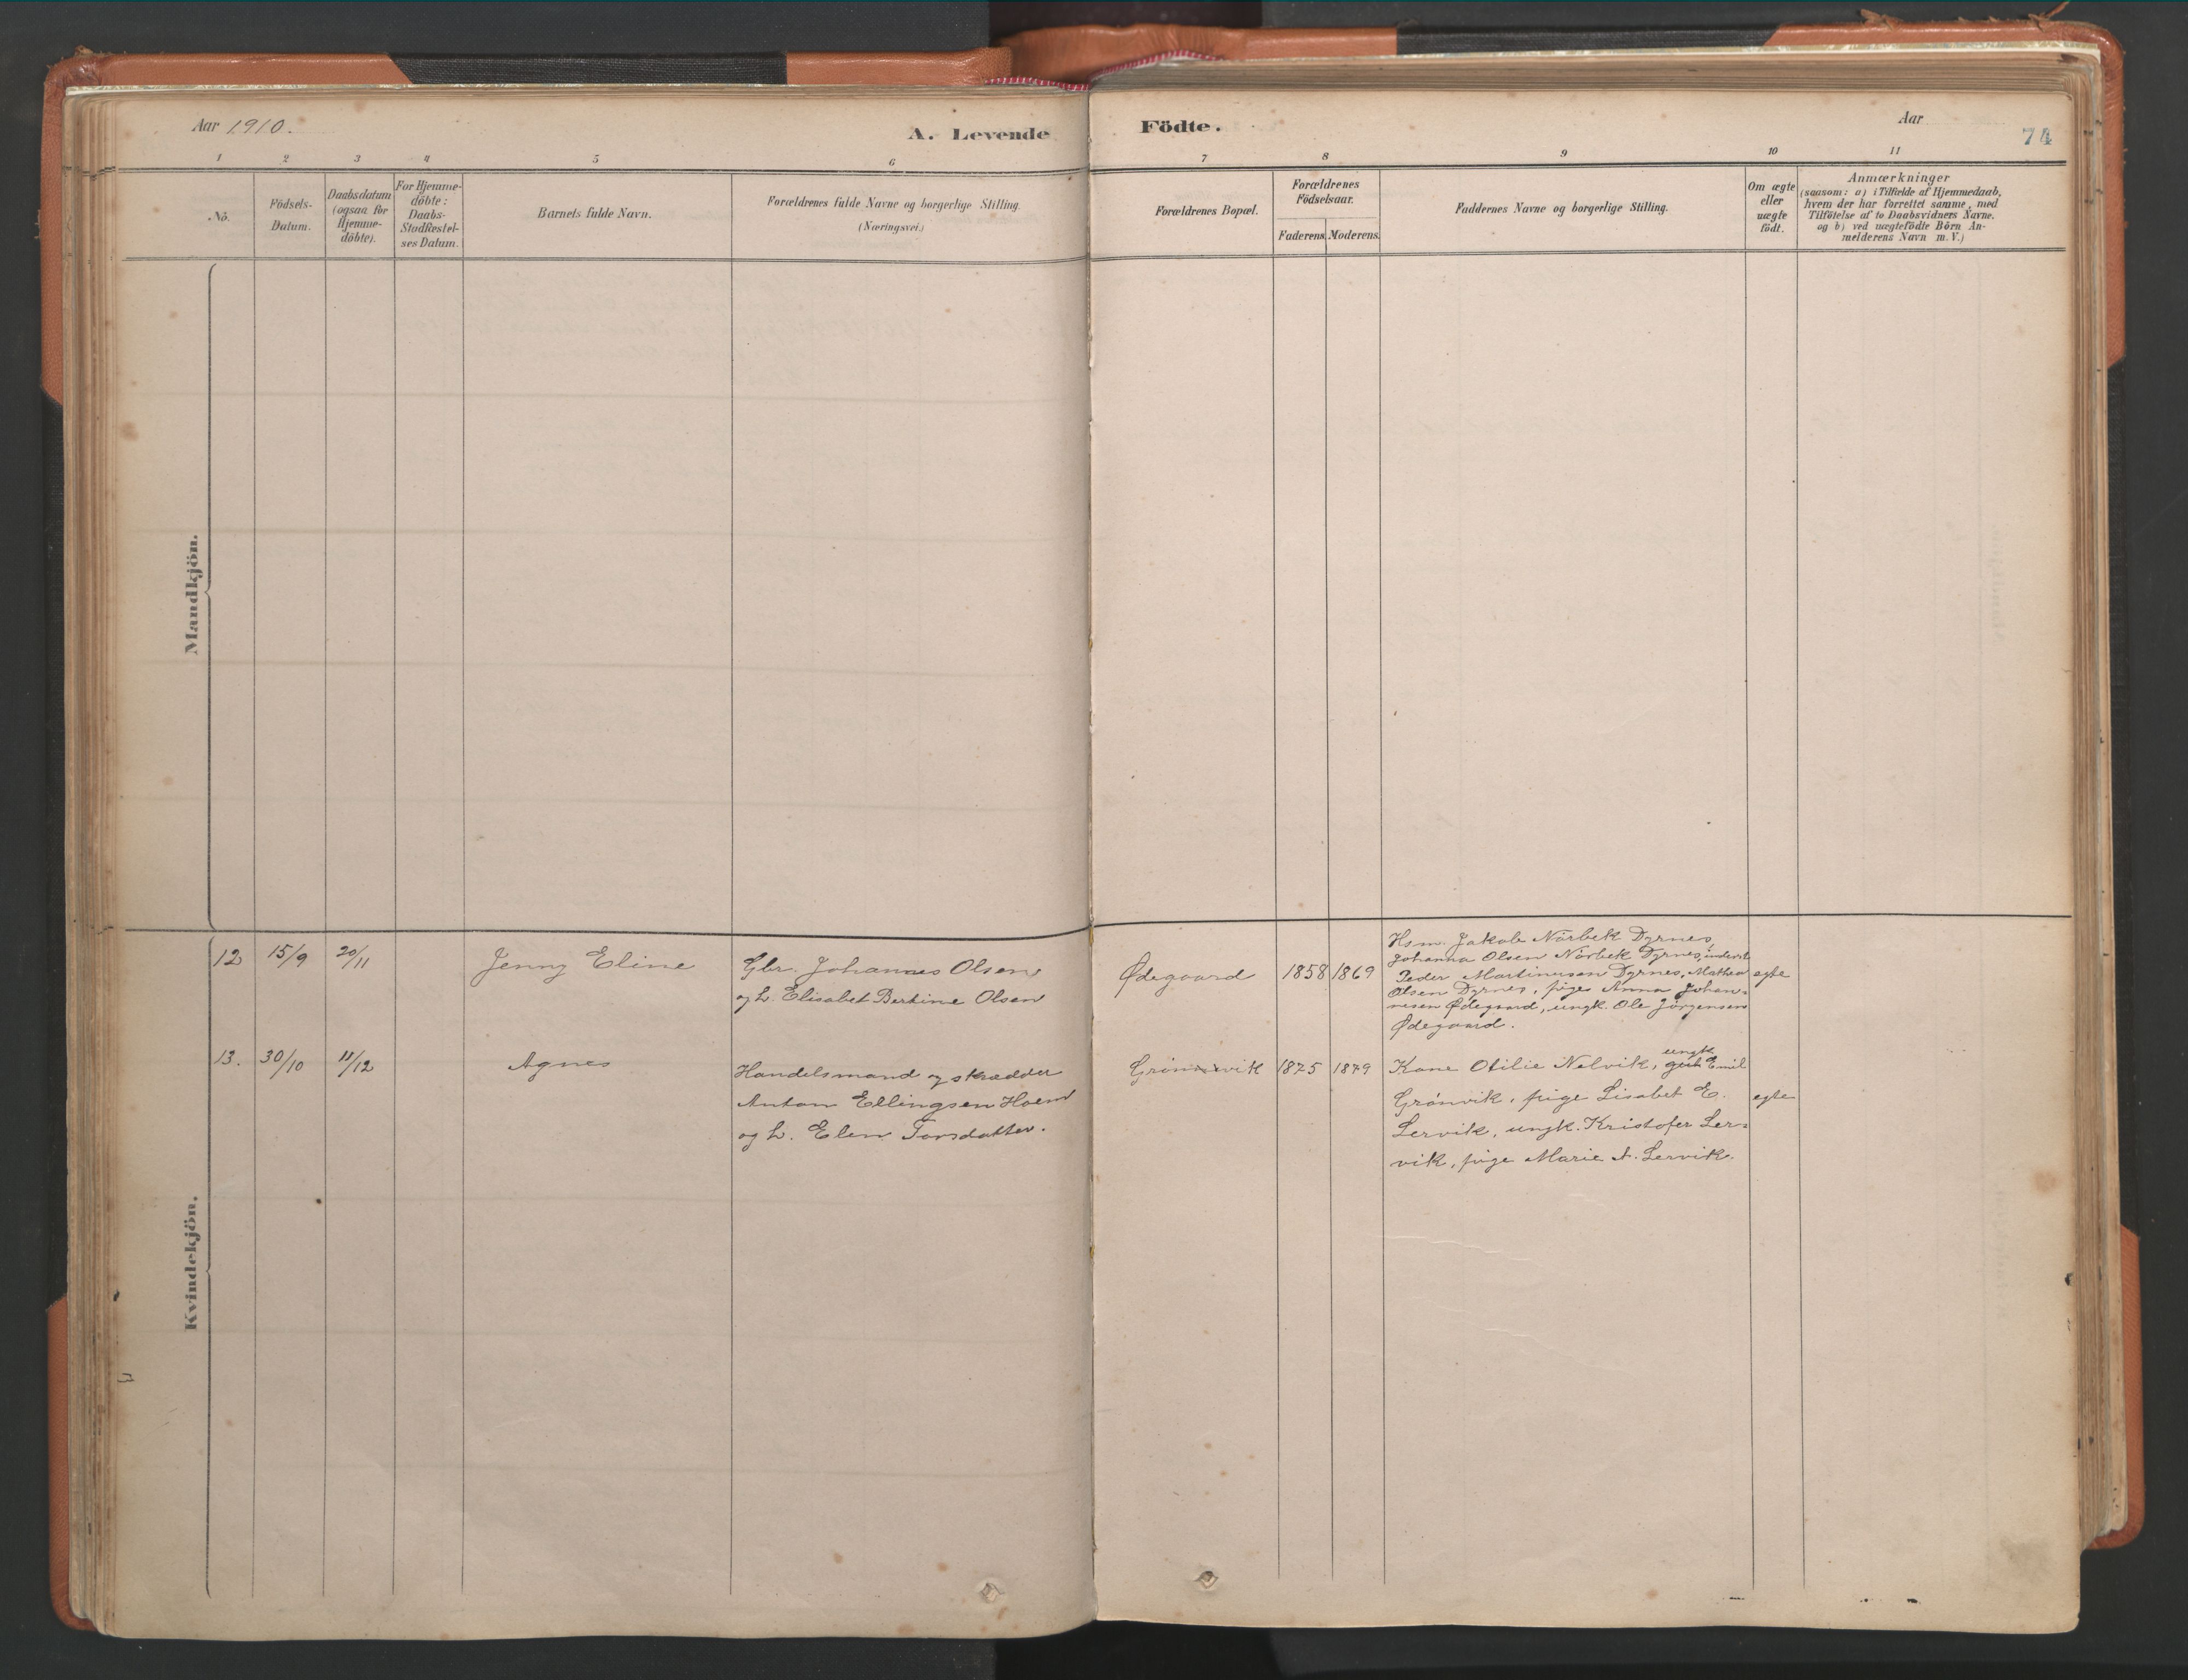 Aar 1910.
A. Levende Födte.
Aar
74
1 2 3 4 5 6 7 8 9 10 11
No.
Födsels-
Datum.
Daabsdatum
(ogsaa for
Hjemme-
döbte).
For Hjemme-
döbte:
Daabs-
Stadfæstel-
ses Datum.
Barnets fulde Navn.
Forældrenes fulde Navne og borgerlige Stilling.
(Næringsvei.)
Forældrenes Bopæl.
Forældrenes
Födselsaar.
Faderens. Moderens.
Faddernes Navne og borgerlige Stilling.
Om ægte
eller
uægte
födt.
Anmærkninger
(saasom: a) i Tilfælde af Hjemmedaab,
hvem der har forrettet samme, med
Tilföielse af to Daabsvidners Navne.
og b) ved uægtefödte Börn An-
melderens Navn m. V.)
Mandkjön.
Kvindekjön.
12 15/9 20/11
Jenny Eline
Gbr. Johannes Olsen
og h. Elisabet Bertine Olsen
Ødegaard
1858 1869
Hsm. Jakob Norbek Dyrnes,
Johanna Olsen Norbek Dyrnes, inderst
Peder Martinusen Dyrnes, Mathea
Olsen Dyrnes, pige Anna Johan-
nesen Ødegaard, ungk. Ole Jörgensen
Ødegaard.
egte
13. 30/10 11/12
Agnes
Handelsmand og skrædder
Anton Ellingsen Hoem
og h. Elen Torsdatter.
Grönvik
1875 1879
ungk
Kone Otilie Nelvik, gut Emil
Grönvik, pige Lisabet E.
Lervik, ungk. Kristofer Ler-
vik, pige Marie A. Lervik.
egte